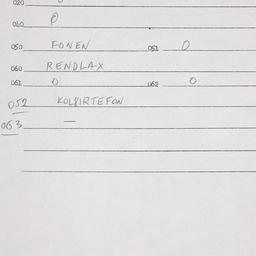 020 0
040 0
050 FONEN 051 0
060 RENDLAX
061 0 062 0
052 KOLPIRTEFON
063 —